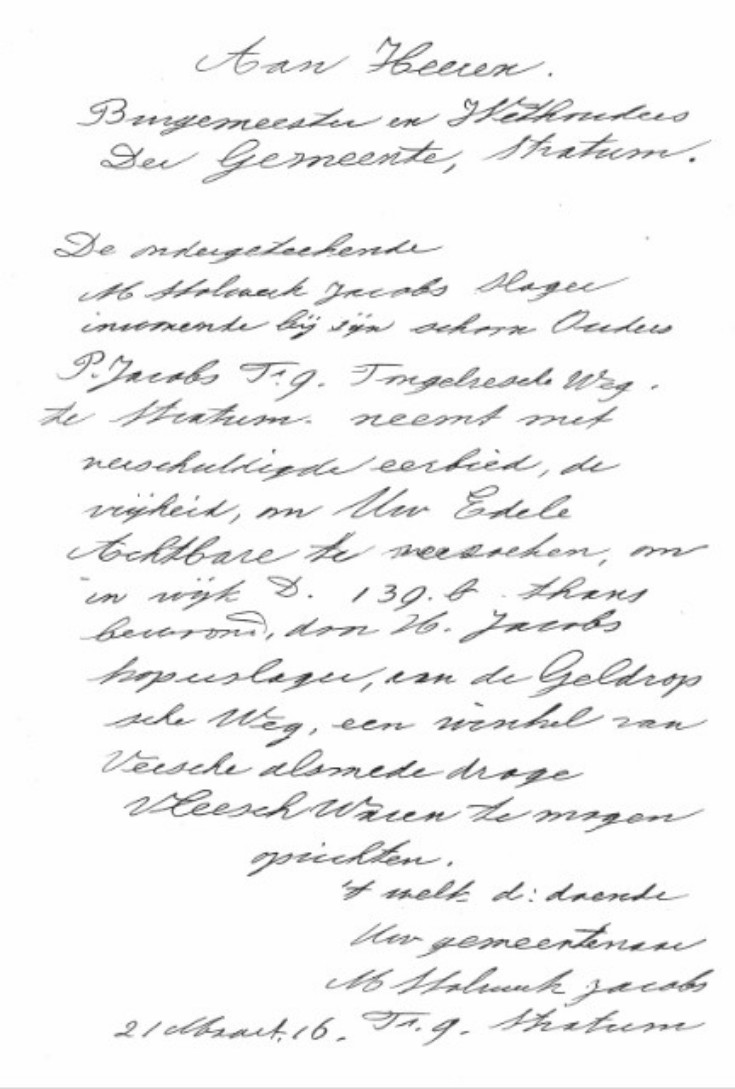 Aan Heeren.
Burgemeester en Wethouders
Der Gemeente, Stratum.
De ondergeteekende
M Stolwerk Jacobs Slager
inwonende bij zijn schoon Ouders
P. Jacobs Tr. 9. Tongelresche Weg.
te Stratum. neemt met
verschuldigde eerbied, de
vrijheid, om Uw Edele
Achtbare te verzoeken, om
in wijk D. 139. b. thans
bewoond, door H. Jacobs
koperslager, aan de Geldrop
sche Weg, een winkel van
Versche alsmede droge
Vleesch Waren te mogen
oprichten.
't welk d: doende
Uw gemeentenaar
M Stolwerk Jacobs
21 Maart. 16. Tr. 9. Stratum